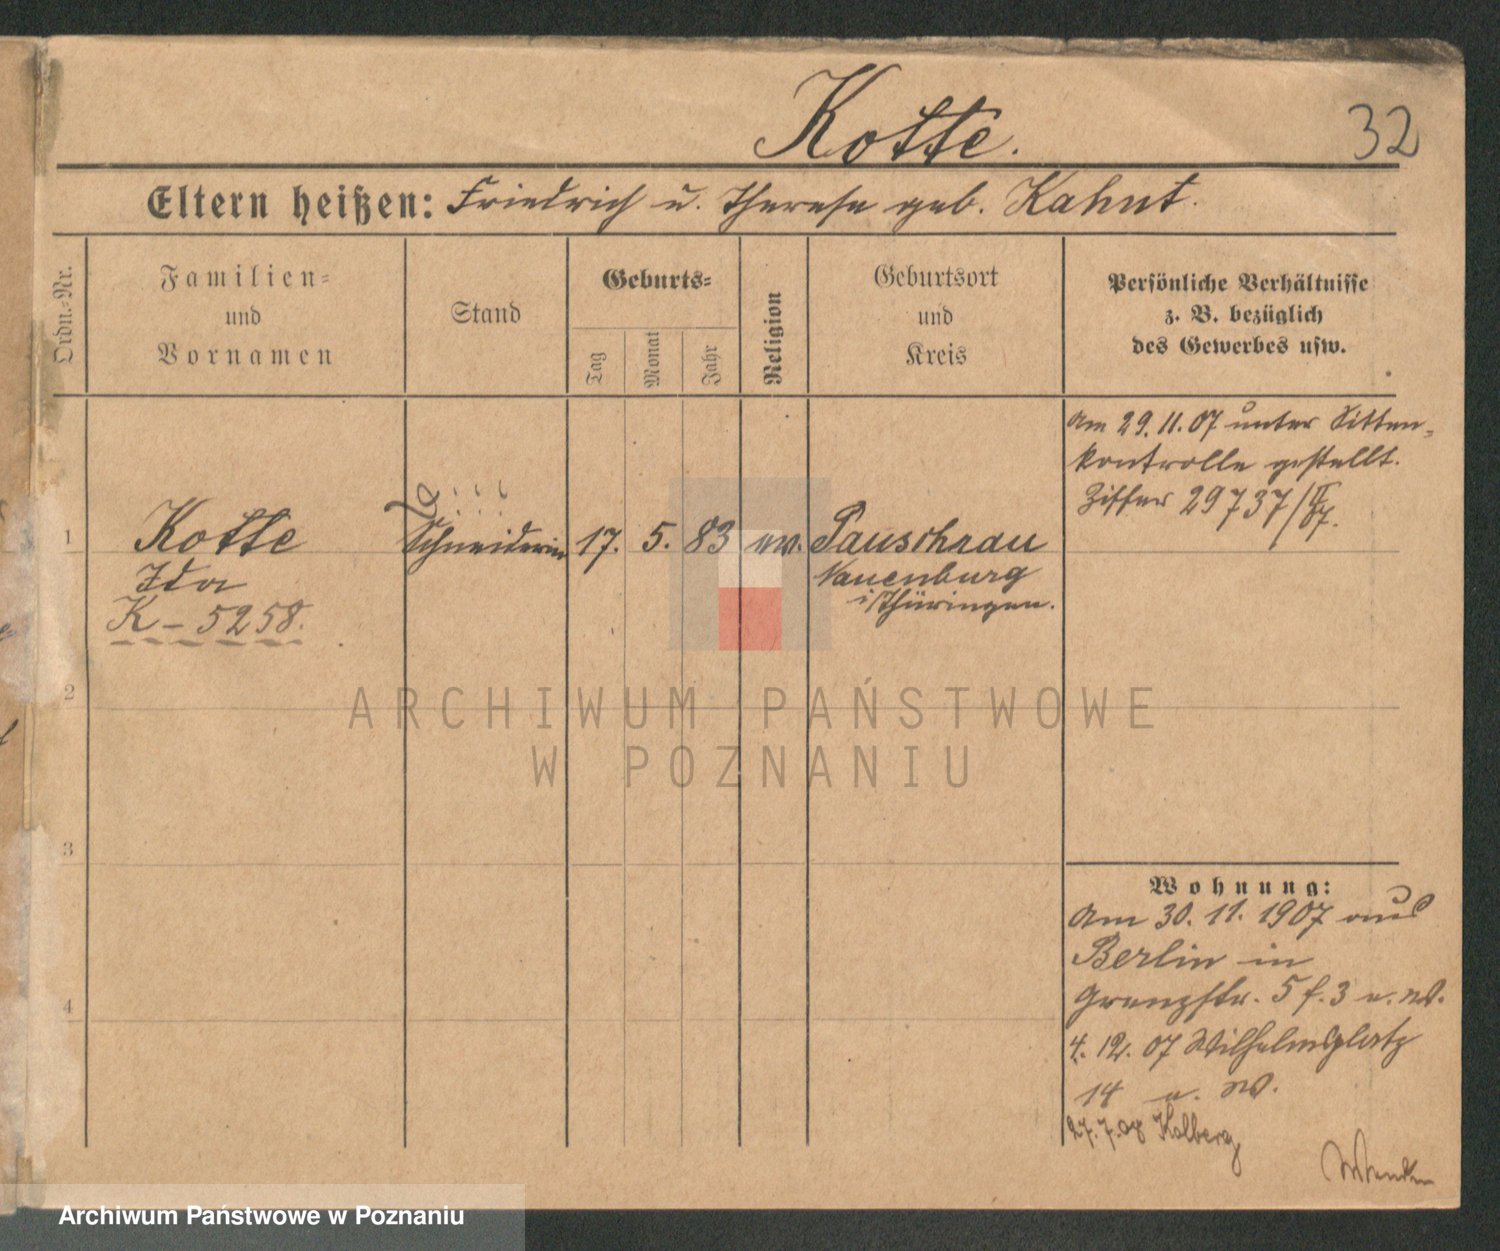 Kotte.
32
Eltern heißen: Friedrich u. Therese geb. Kahnt.
Ordn.-Nr.
Familien-
und
Vornamen
Stand
Geburts-
Tag
Monat
Jahr
Religion
Geburtsort
und
Kreis
Persönliche Verhältnisse
z. B. bezüglich
des Gewerbes usw.
am 29.11.07 unter Sitten-
kontrolle gestellt.
Ziffer 29737/II 07.
1
Kotte
Ida
K - 5258.
Schneiderin
17. 5. 83
ev.
Pauschrau
Nauenburg
i/Thüringen.
2
3
4
ARCHIWUM PAŃSTWOWE
W POZNANIU
Wohnung:
Am 30. 11. 1907 aus
Berlin in
Grenzstr. 5 f. 3 u. W.
4. 12. 07 Wilhelmsplatz
14 u. W.
27.7.08 Kolberg
Archiwum Państwowe w Poznaniu